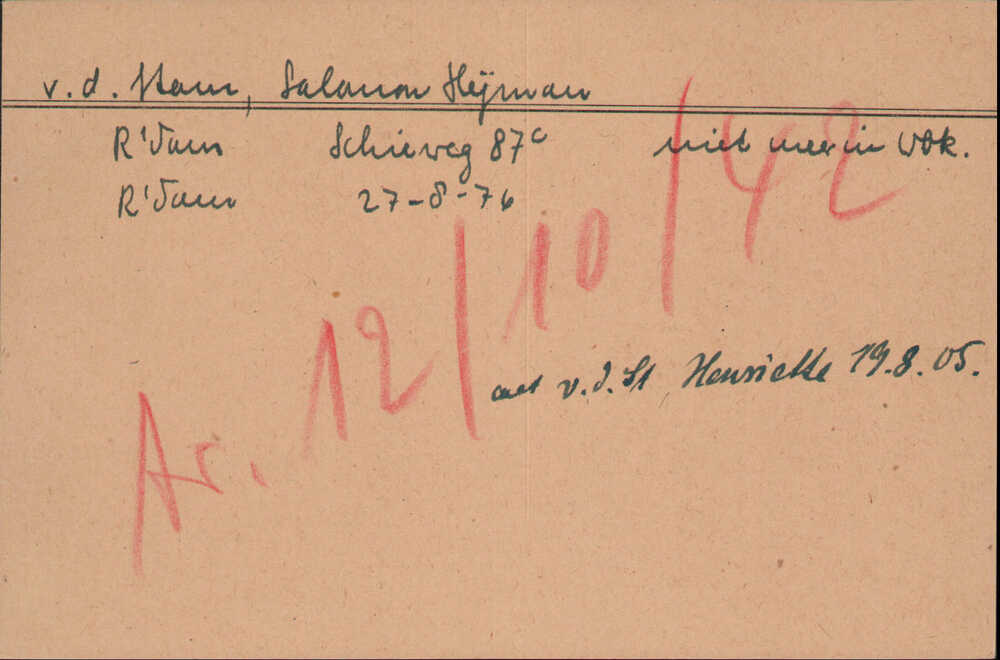 v. d. Stam, Salomon Heijman
R'dam Schieweg 87c niet meer in Wbk.
R'dam 27-8-76
met v.d. St Henriette 19.8.05.
Ar. 12/10/42